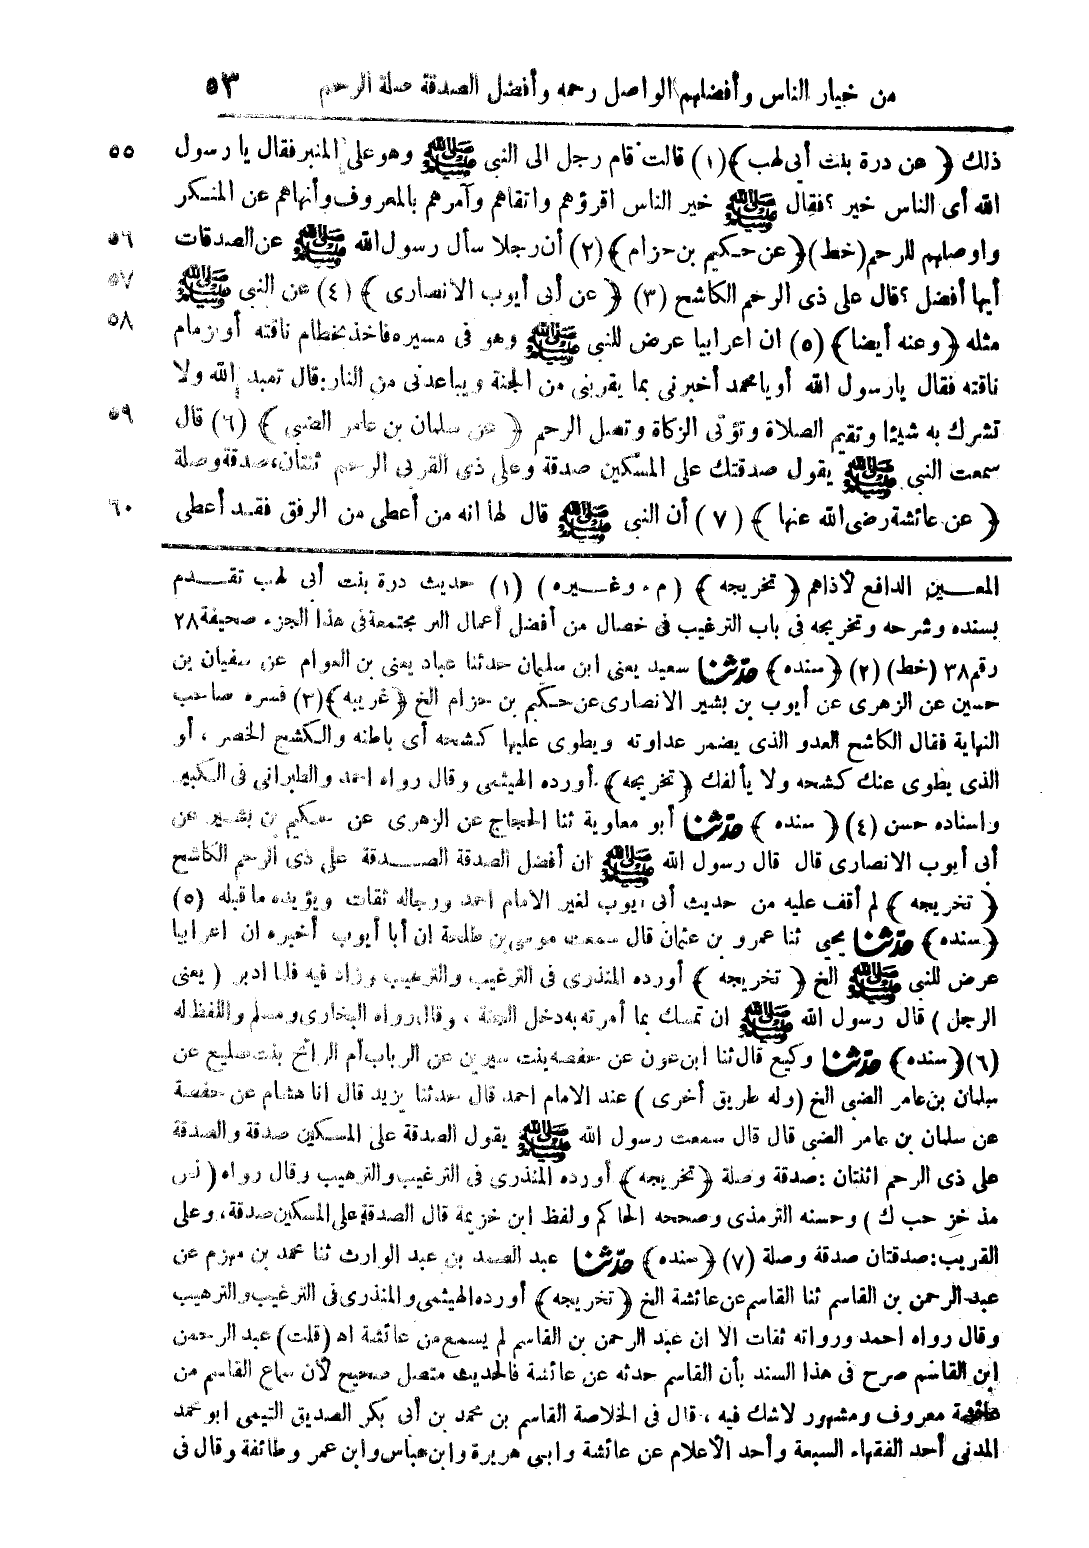 من خيار الناس وأفضلهم الواصل رحمه وأفضل الصدقة صلة الرحم ٥٣
ذلك ﴿ عن درة بنت أبى لهب ﴾ (١) قالت قام رجل الى النبى ﷺ وهو على المنبر فقال يا رسول ٥٥
الله أى الناس خير ؟ فقال ﷺ خير الناس اقرؤهم واتقاهم وآمرهم بالمعروف وأنهاهم عن المنكر
واوصلهم للرحم (خط) ﴿ عن حكيم بن حزام ﴾ (٢) أن رجلا سأل رسول الله ﷺ عن الصدقات ٥٦
أيها أفضل ؟ قال على ذى الرحم الكاشح (٣) ﴿ عن أبى أيوب الانصارى ﴾ (٤) عن النبى ﷺ ٥٧
مثله ﴿ وعنه أيضا ﴾ (٥) ان اعرابيا عرض للنبى ﷺ وهو فى مسيره فاخذ بخطام ناقته أو زمام ٥٨
ناقته فقال يارسول الله أو يامحمد أخبرنى بما يقربنى من الجنة ويباعدنى من النار: قال تعبد الله ولا
تشرك به شيئا وتقيم الصلاة وتؤتى الزكاة وتصل الرحم ﴿ عن سلمان بن عامر الضبى ﴾ (٦) قال ٥٩
سمعت النبى ﷺ يقول صدقتك على المسكين صدقة وعلى ذى القربى الرحم ثنتان، صدقة وصلة
﴿ عن عائشة رضى الله عنها ﴾ (٧) أن النبى ﷺ قال لها انه من أعطى من الرفق فقد أعطى ٦٠
المعــين الدافع لأذاهم ﴿ تخريجه ﴾ (م . وغـيره) (١) حديث درة بنت أبى لهب تقـدم
بسنده وشرحه وتخريجه فى باب الترغيب فى خصال من أفضل أعمال البر مجتمعة فى هذا الجزء صحيفة ٢٨
رقم ٣٨ (خط) (٢) ﴿ سنده ﴾ حدّثنا سعيد يعنى ابن سلمان حدثنا عباد يعنى بن العوام عن سفيان بن
حسين عن الزهرى عن أيوب بن بشير الانصارى عن حكيم بن حزام الخ ﴿ غريبه ﴾ (٣) فسره صاحب
النهاية فقال الكاشح العدو الذى يضمر عداوته ويطوى عليها كشحه أى باطنه والكشح الخصر ، أو
الذى يطوى عنك كشحه ولا يألفك ﴿ تخريجه ﴾ أورده الهيثمى وقال رواه احمد والطبرانى فى الكبير
واسناده حسن (٤) ﴿ سنده ﴾ حدّثنا أبو معاوية ثنا الحجاج عن الزهرى عن حكيم بن بشير عن
أبى أيوب الانصارى قال قال رسول الله ﷺ ان أفضل الصدقة الصـدقة على ذى الرحم الكاشح
﴿ تخريجه ﴾ لم أقف عليه من حديث أبى أيوب لغير الامام احمد ورجاله ثقات ويؤيده ما قبله (٥)
﴿ سنده ﴾ حدّثنا يحيى ثنا عمرو بن عثمان قال سمعت موسى بن طلحة ان أبا أيوب أخبره ان اعرابيا
عرض للنبى ﷺ الخ ﴿ تخريجه ﴾ أورده المنذرى فى الترغيب والترهيب وزاد فيه فلما ادبر ( يعنى
الرجل ) قال رسول الله ﷺ ان تمسك بما أمرته به دخل الجنة ، وقال رواه البخارى ومسلم واللفظ له
(٦) ﴿ سنده ﴾ حدّثنا وكيع قال ثنا ابن عون عن حفصه بنت سيرين عن الرباب أم الرائح بنت صليع عن
سلمان بن عامر الضبى الخ (وله طريق أخرى ) عند الامام احمد قال حدثنا يزيد قال انا هشام عن حفصة
عن سلمان بن عامر الضبى قال قال سمعت رسول الله ﷺ يقول الصدقة على المسكين صدقة والصدقة
على ذى الرحم اثنتان : صدقة وصلة ﴿ تخريجه ﴾ أورده المنذرى فى الترغيب والترهيب وقال رواه ( نس
مذ خز حب ك ) وحسنه الترمذى وصححه الحاكم ولفظ ابن خزيمة قال الصدقة على المسكين صدقة، وعلى
القريب: صدقتان صدقة وصلة (٧) ﴿ سنده ﴾ حدّثنا عبد الصمد بن عبد الوارث ثنا محمد بن مهزم عن
عبد الرحمن بن القاسم ثنا القاسم عن عائشة الخ ﴿ تخريجه ﴾ أورده الهيثمى والمنذرى فى الترغيب والترهيب
وقال رواه احمد ورواته ثقات الا ان عبد الرحمن بن القاسم لم يسمع من عائشة اه (قلت) عبد الرحمن
ابن القاسم صرح فى هذا السند بأن القاسم حدثه عن عائشة فالحديث متصل صحيح لأن سماع القاسم من
عائشة معروف ومشهور لاشك فيه ، قال فى الخلاصة القاسم بن محمد بن أبى بكر الصديق التيمى ابو محمد
المدنى أحد الفقهاء السبعة وأحد الأعلام عن عائشة وابى هريرة وابن عباس وابن عمر وطائفة وقال فى